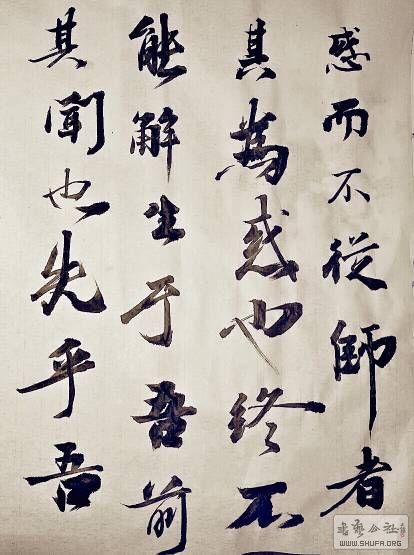 惑而不從師者
其為惑也終不
能解生于吾前
其聞也先乎吾
WWW.SHUFA.ORG